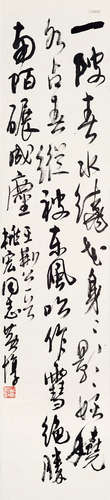 一陂春水繞花身〻影妖嬈
各占春縱被東風吹作雪絕勝
南陌碾成塵
王荊公一首
宏同志